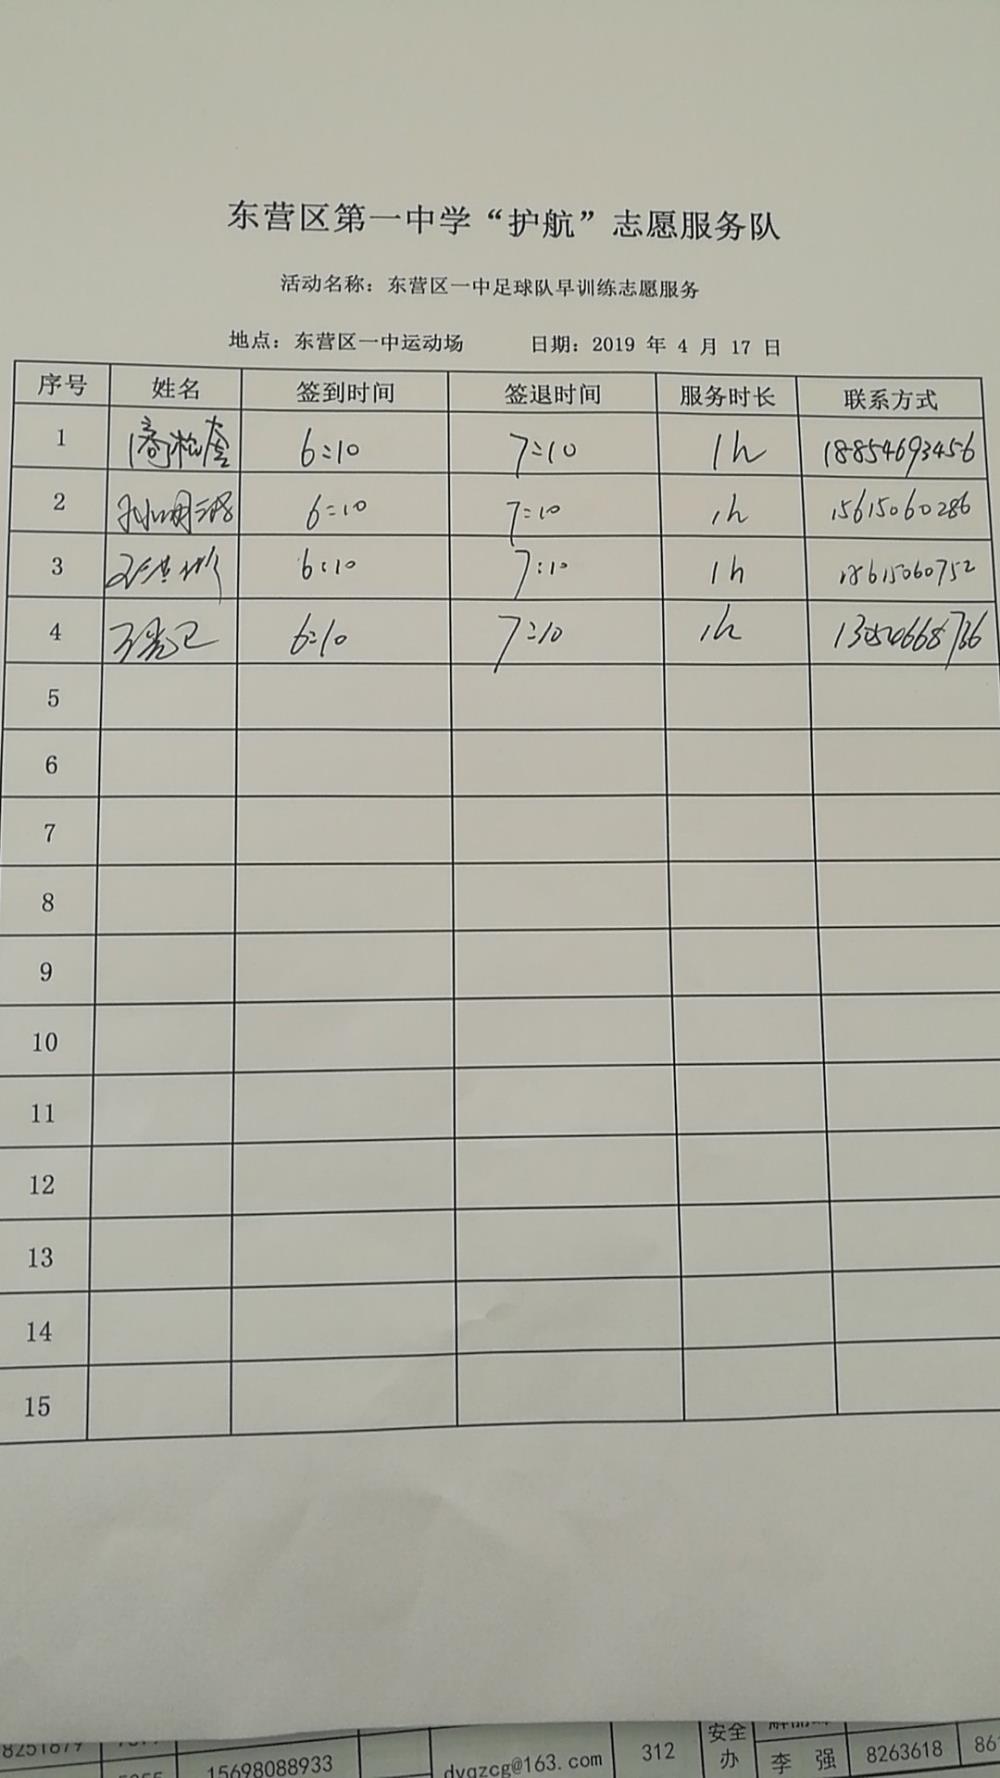 东营区第一中学“护航”志愿服务队
活动名称：东营区一中足球队早训练志愿服务
地点：东营区一中运动场 日期：2019 年 4 月 17 日
序号 姓名 签到时间 签退时间 服务时长 联系方式
1 6:10 7:10 1h 18854693456
2 6:10 7:10 1h 15615060286
3 6:10 7:10 1h 18615060752
4 6:10 7:10 1h
5
6
7
8
9
10
11
12
13
14
15
8251879 15698088933 dyqzcg@163.com 312 安全办 李 强 8263618